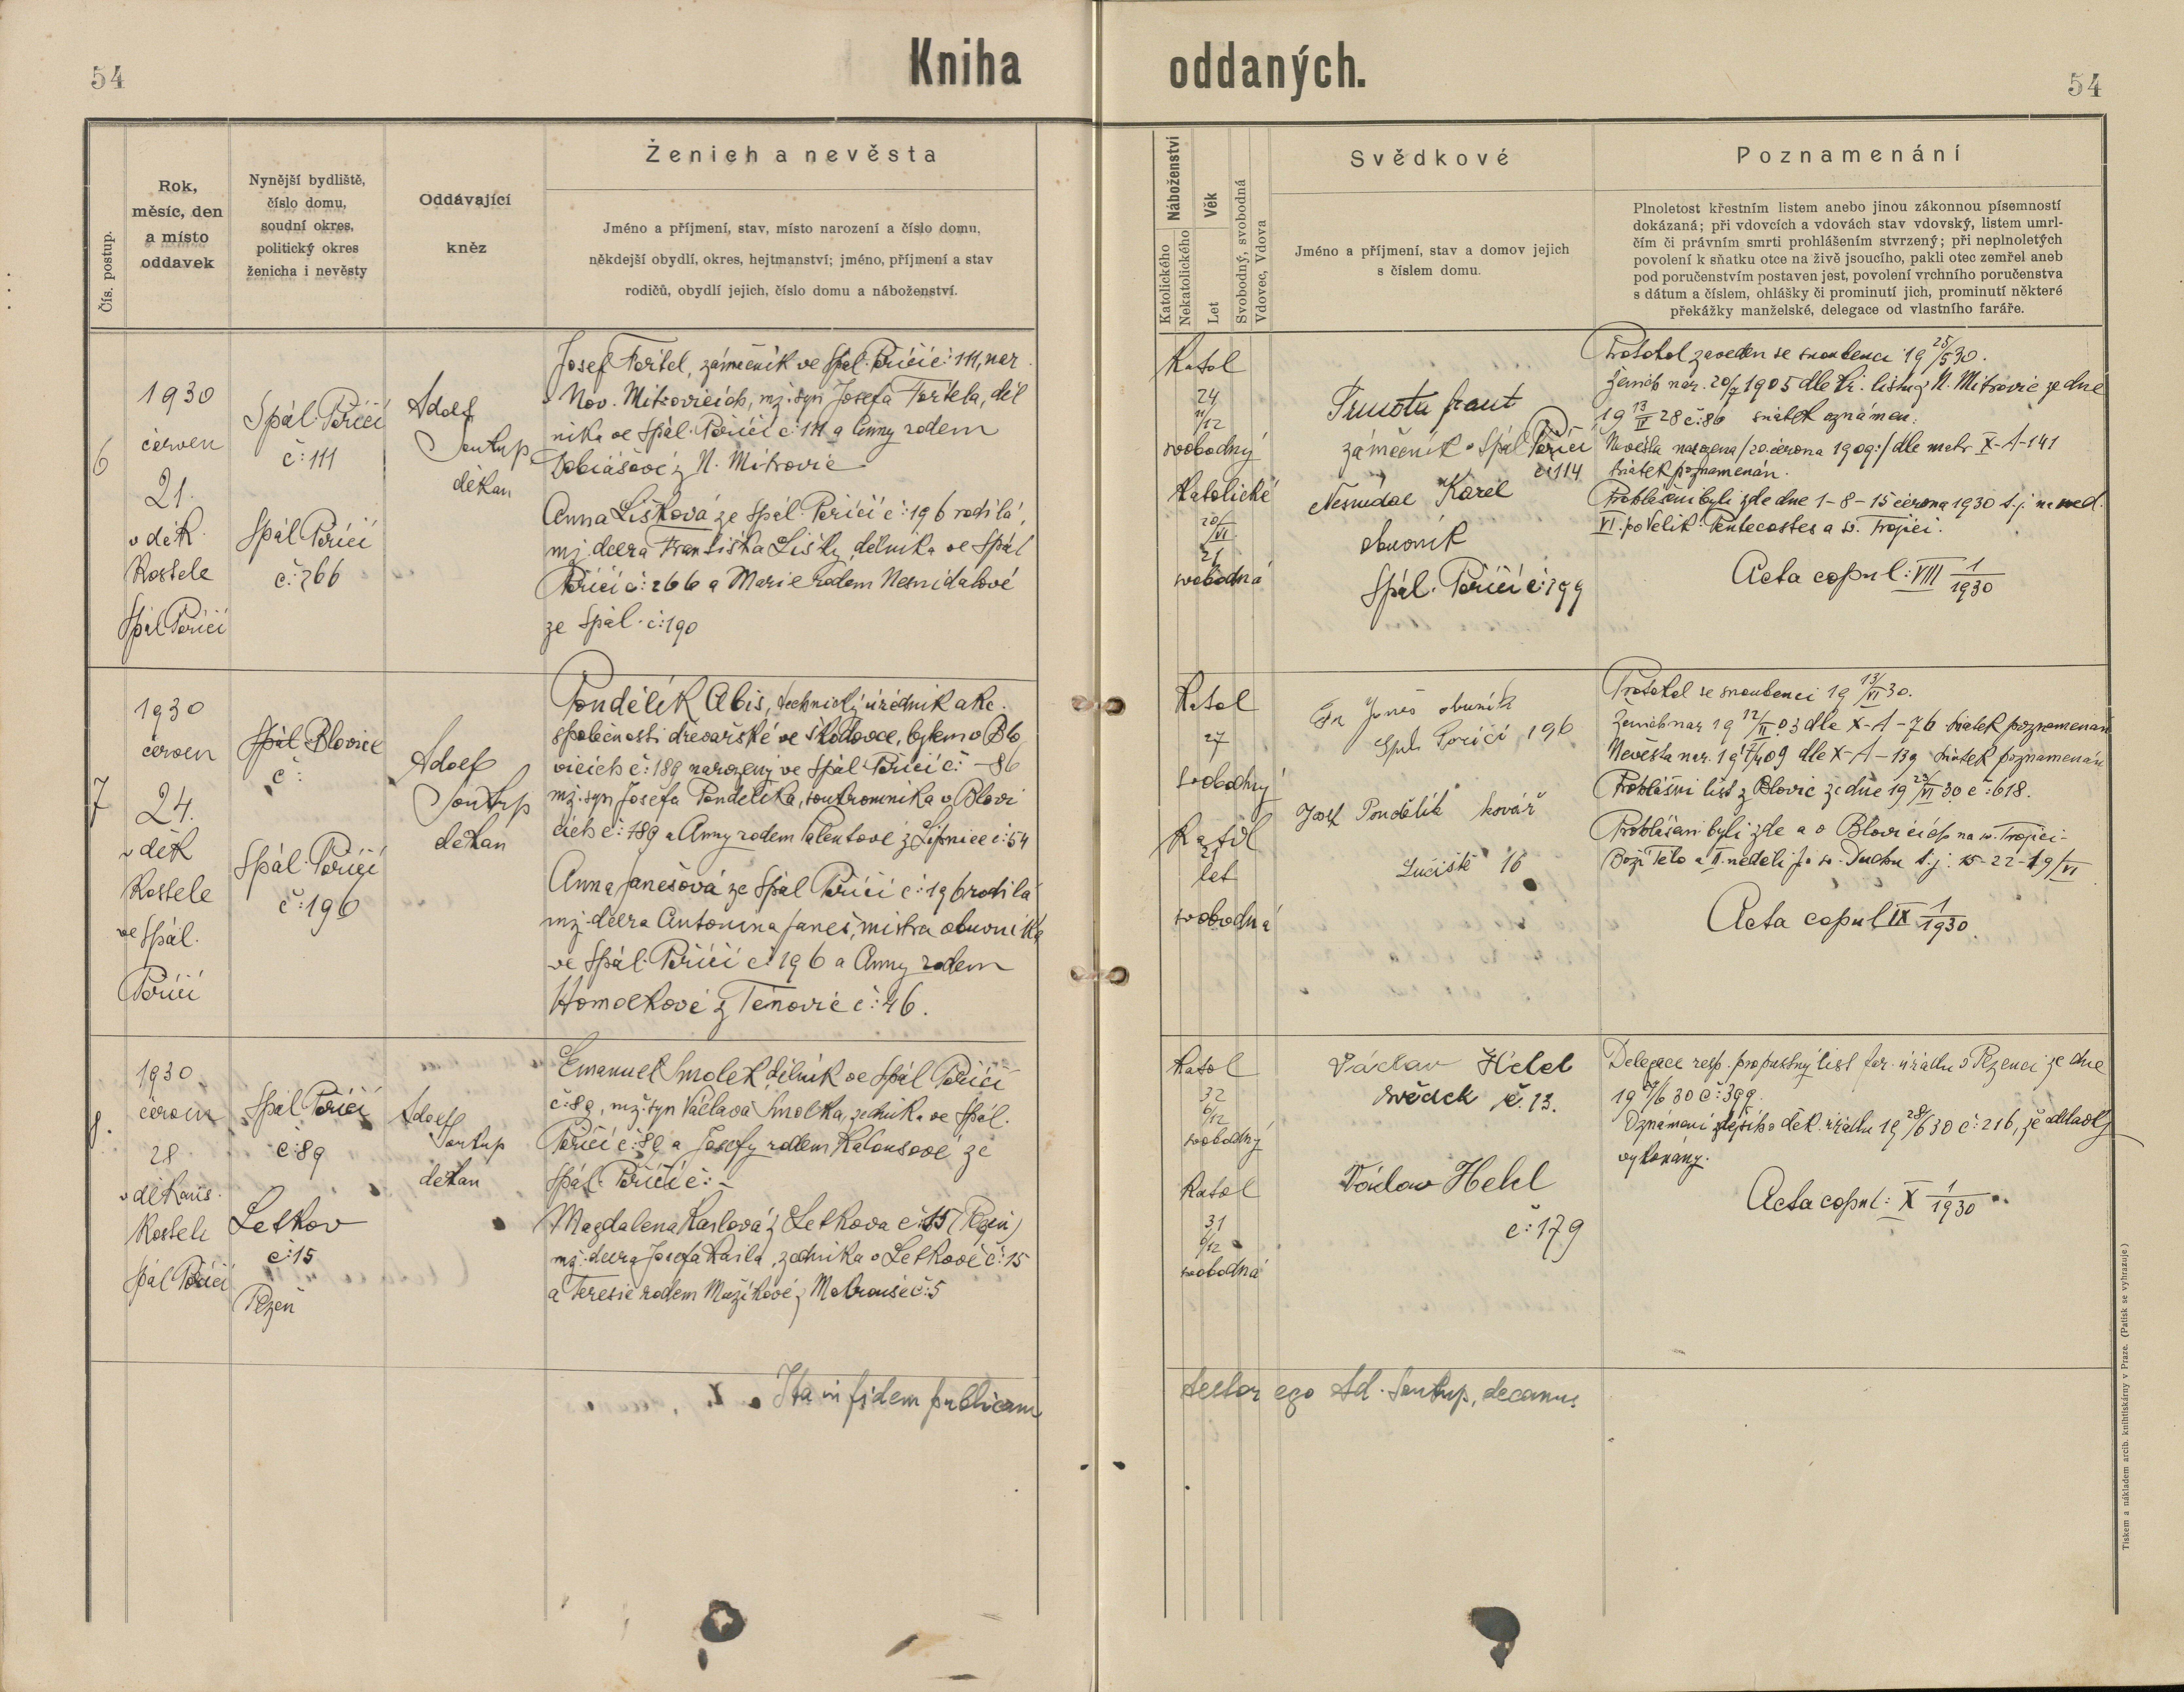 54
Kniha oddaných.
54
Čís. postup.
Rok,
měsíc, den
a místo
oddavek
Nynější bydliště,
číslo domu,
soudní okres,
politický okres
ženicha i nevěsty
Oddávající
kněz
Ženich a nevěsta
Jméno a příjmení, stav, místo narození a číslo domu,
někdejší obydlí, okres, hejtmanství; jméno, příjmení a stav
rodičů, obydlí jejich, číslo domu a náboženství.
Náboženství
Katolického
Nekatolického
Věk
Let
Svobodný, svobodná
Vdovec, Vdova
Svědkové
Jméno a příjmení, stav a domov jejich
s číslem domu.
Poznamenání
Plnoletost křestním listem anebo jinou zákonnou písemností
dokázaná; při vdovcích a vdovách stav vdovský, listem umrl-
čím či právním smrti prohlášením stvrzený; při neplnoletých
povolení k sňatku otce na živě jsoucího, pakli otec zemřel aneb
pod poručenstvím postaven jest, povolení vrchního poručenstva
s dátum a číslem, ohlášky či prominutí jich, prominutí některé
překážky manželské, delegace od vlastního faráře.
6
1930
červen
21.
v děk.
Kostele
Spál Poříčí
Spál. Poříčí
č: 111
Spál Poříčí
č: 266
Adolf
Soukup
děkan
Josef Fořtel, zámečník ve Spál. Poříčí č: 111, nar.
v Nov. Mitrovicích, mž. syn Josefa Fořtela, děl
níka ve Spál. Poříčí č: 111 a Anny rodem
Tobiášové z N. Mitrovic
Anna Lišková ze Spál. Poříčí č: 196 rodilá,
mž. dcera Františka Lišky, dělníka ve Spál
Poříčí č: 266 a Marie rodem Nesnídalové
ze Spál. č: 190
Katol
24
11/12
svobodný
Katolické
20/VI
21
svobodná
zámečník Spál Poříčí
č 114
Nesnídal Karel
obuvník
Spál. Poříčí č: 199
Protokol zaveden se snoubenci 19 25/5 30.
Ženich nar. 20/7 1905 dle kř. listu z N. Mitrovic ze dne
19 13/II 28 č: 86 sňatek oznámen.
Nevěsta narozena /20. června 1909:/ dle matr. X-A-141
sňatek poznamenán.
Prohlášeni byli zde dne 1-8-15 června 1930 t.j. na ned.
VI. po Velik. Pentecostes a sv. Trojici.
Acta copul: VIII 1/1930
7
1930
červen
24.
v děk
Kostele
ve Spál.
Poříčí
Spál Blovice
č:
Spál. Poříčí
č: 196
Adolf
Soukup
děkan
Pondělík Alois, technický úředník akc.
společnosti dřevařské ve Škodovce, bytem v Blo
vicích č: 189 narozený ve Spál Poříčí č: - 86
mž. syn Josefa Pondělíka, soukromníka v Blovi
cích č: 189 a Anny rodem Valentové z Lipnice č: 54
Anna Janešová ze Spál Poříčí č: 196 rodilá
mž. dcera Antonína Janeš, mistra obuvníka
ve Spál. Poříčí č: 196 a Anny rodem
Homolkové z Těnovic č: 46.
Katol
27
svobodný
Katol
21
let
svobodná
Fr Janeš obuvník
Spál. Poříčí 196
Josef Pondělík kovář
Lučiště 16
Protokol se snoubenci 19 13/VI 30.
Ženich nar 19 12/II 03 dle X-A-76 sňatek poznamenán
Nevěsta nar. 19 17/4 09 dle X-A-139 sňatek poznamenán
Prohlášní list z Blovic ze dne 19 23/VI 30 č: 618.
Prohlášeni byli zde a v Blovicích na sv. Trojici-
Boží Tělo a II. neděli po sv. Duchu t.j. 15-22-19/VI
Acta copul IX 1/1930.
8.
1930
červen
28
v děkans.
Kostele
Spál Poříčí
Spál Poříčí
č: 89
Letkov
č: 15
Plzeň
Adolf
Soukup
děkan
Emanuel Smolek dělník ve Spál Poříčí
č: 89, mž. syn Václava Smolka, zedníka ve Spál.
Poříčí č: 89 a Josefy rodem Kalousové ze
Spál. Poříčí č: -
Magdalena Karlová z Letkova č: 15 (Plzeň)
mž. dcera Josefa Karla, zedníka v Letkově č: 15
a Teresie rodem Mužíkové z Mokrouše č: 5
Katol
32
6/12
svobodný
Katol
31
6/12
svobodná
Václav Hekl
svědek č. 13.
Václav Hekl
č: 179
Delegace resp. propustný list far. úřadu v Plzenci ze dne
19 /6 30 č: 399.
Oznámení zdejšího děk. úřadu 19 28/6 30 č: 216, že oddavky
vykonány.
Acta copul: X 1/1930
Ita in fidem publicam
testor ego Ad. Soukup, decanus
Tiskem a nákladem arcib. knihtiskárny v Praze. (Patisk se vyhrazuje.)